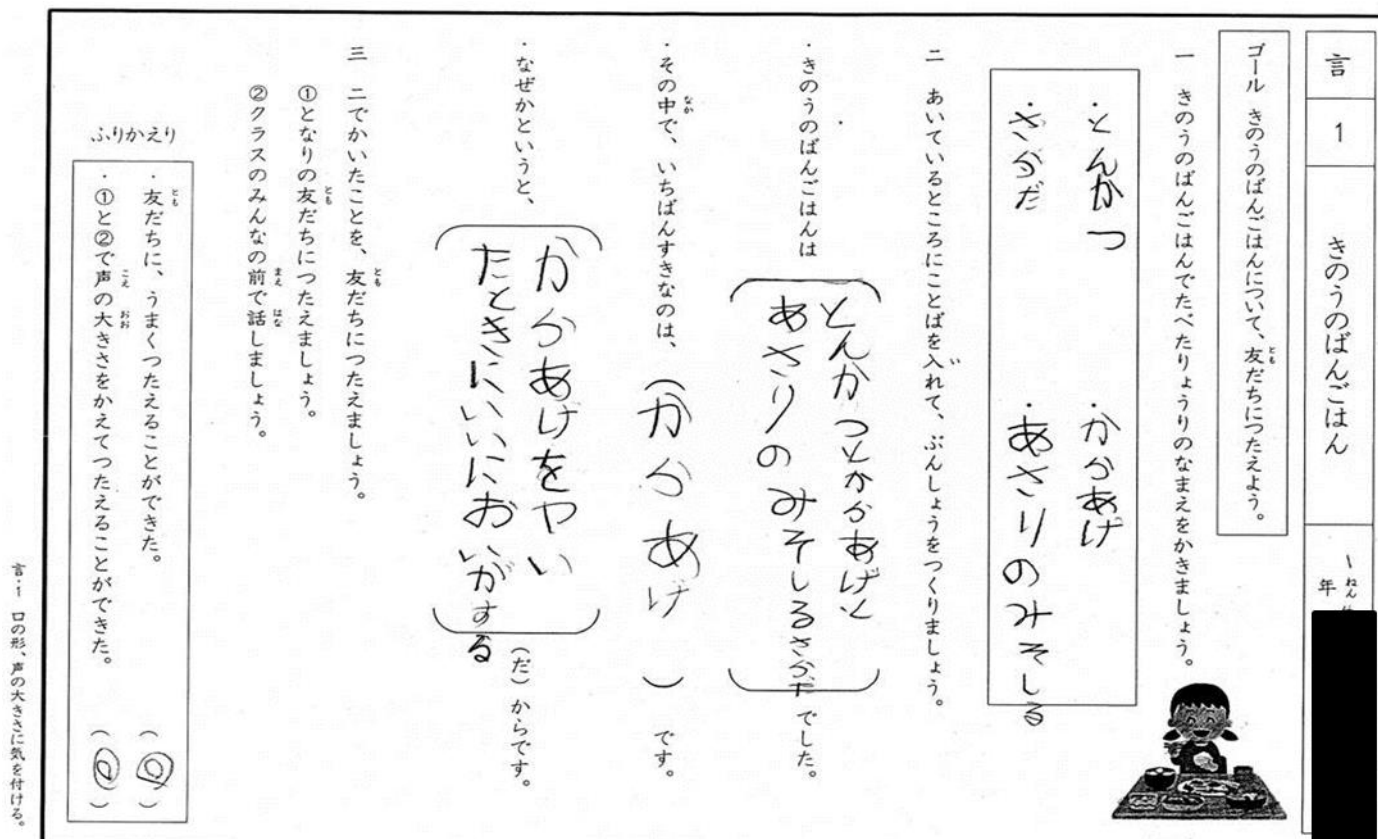 言
1
きのうのばんごはん
1ねん
年
ゴール きのうのばんごはんについて、友だちにつたえよう。
とも
一 きのうのばんごはんでたべたりょうりのなまえをかきましょう。
・とんかつ ・からあげ
・さらだ ・あさりのみそしる
二 あいているところにことばを入れて、ぶんしょうをつくりましょう。
い
・きのうのばんごはんは
とんかつとからあげと
あさりのみそしるさらだ
でした。
・その中で、いちばんすきなのは、(からあげ)です。
なか
・なぜかというと、
からあげをやい
たときにいいにおいがする
(だ)からです。
三 二でかいたことを、友だちにつたえましょう。
とも
①となりの友だちにつたえましょう。
とも
②クラスのみんなの前で話しましょう。
まえ はな
ふりかえり
・友だちに、うまくつたえることができた。(◎)
とも
・①と②で声の大きさをかえてつたえることができた。(◎)
こえ おお
言・1 口の形、声の大きさに気を付ける。